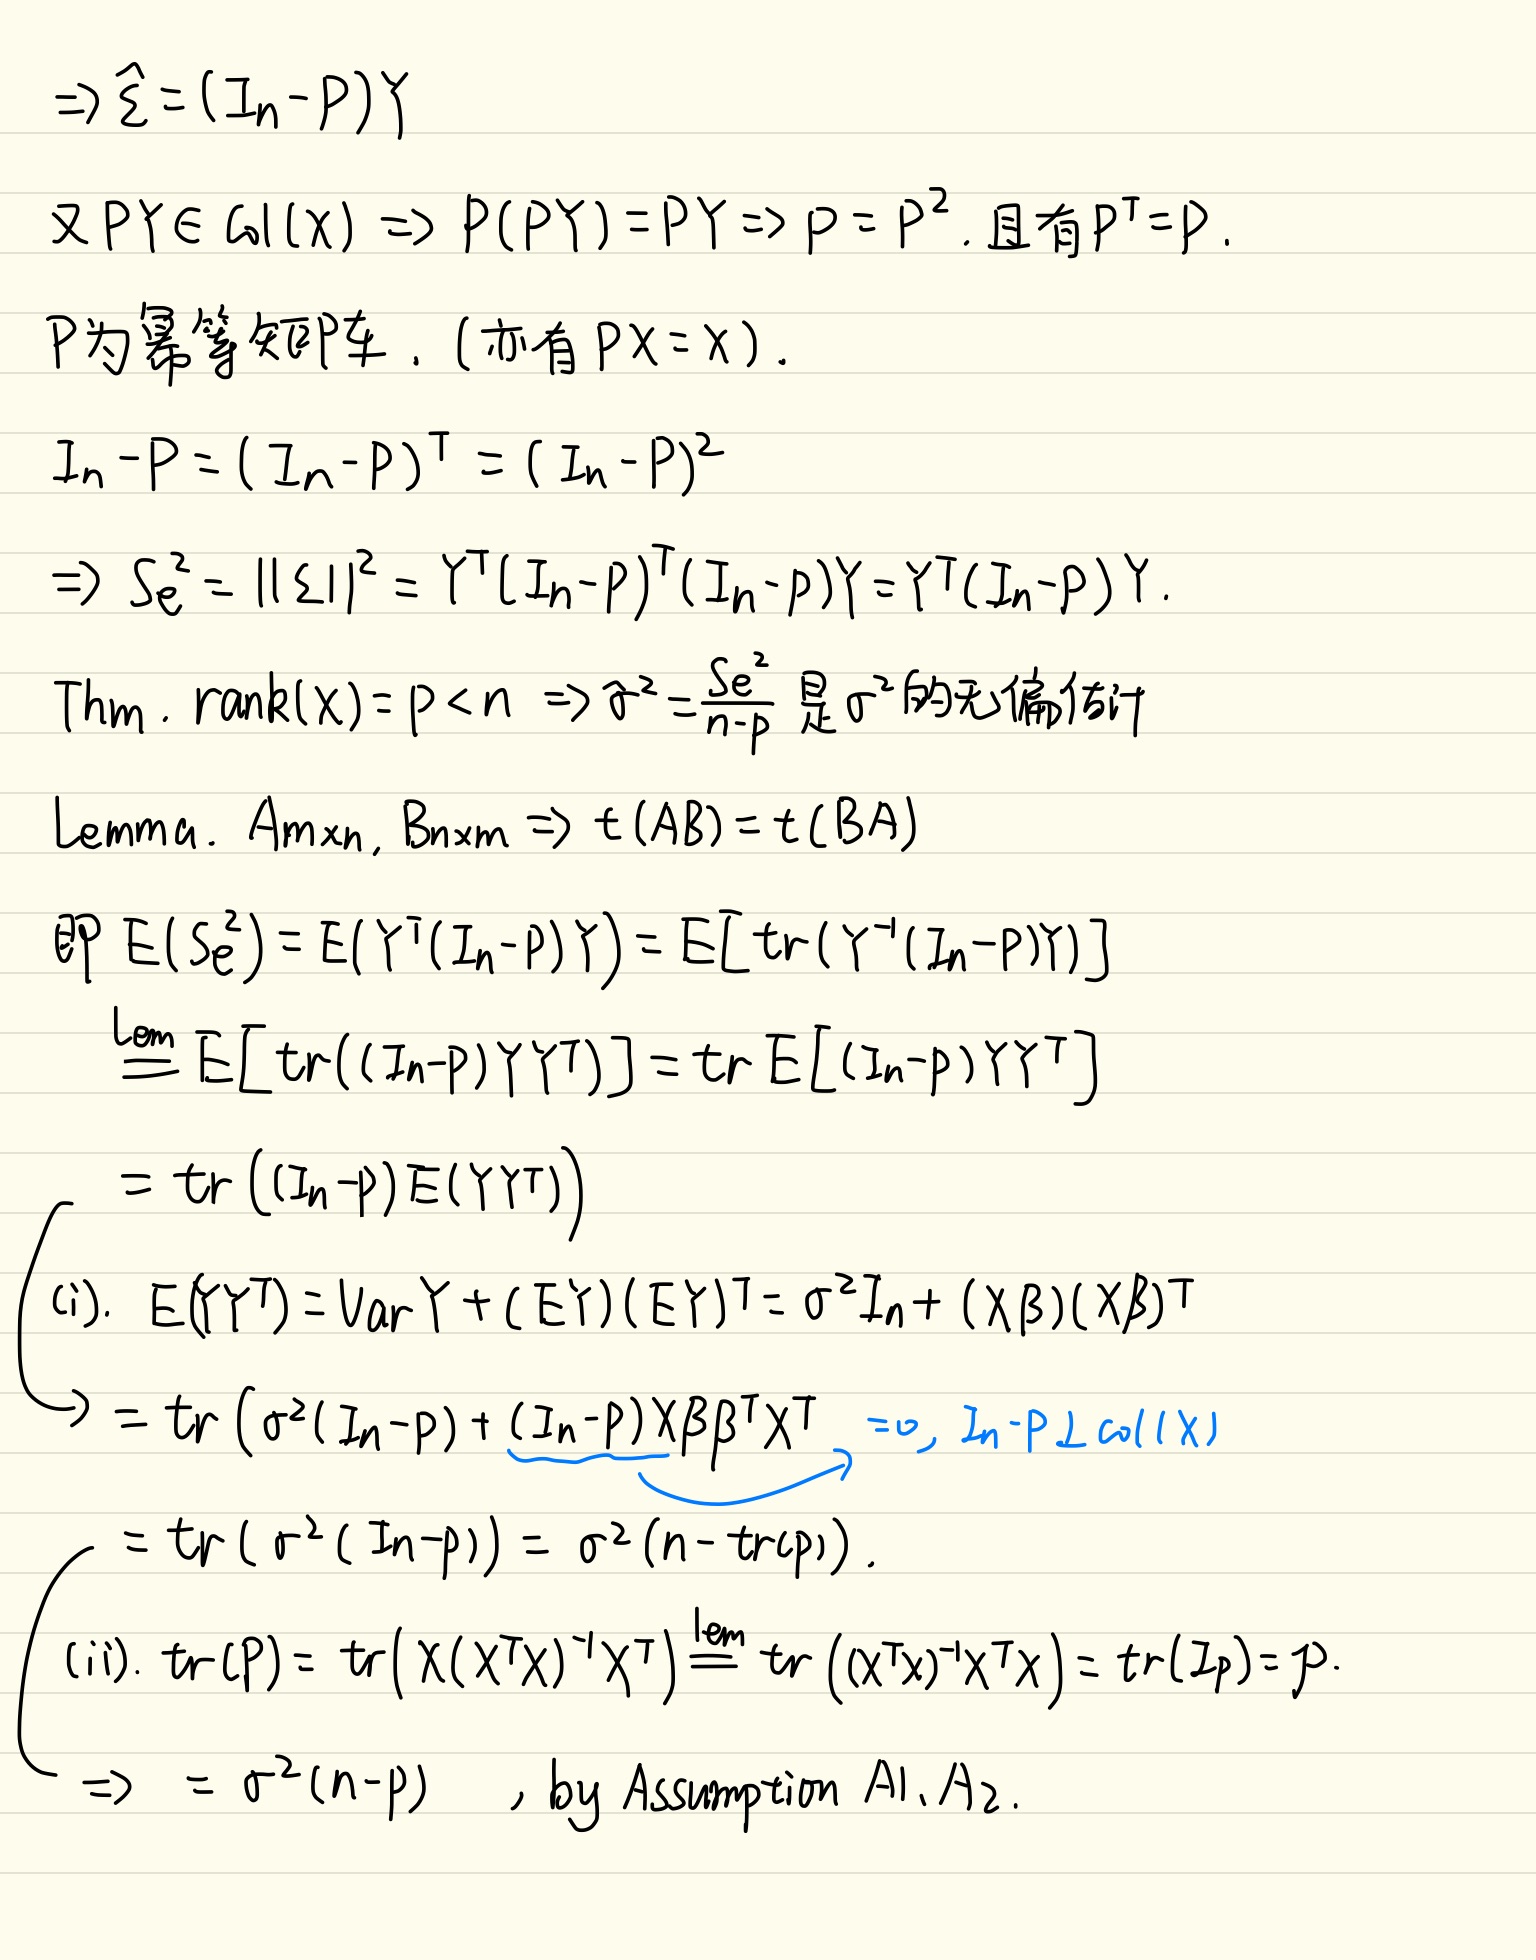 ⇒ ε̂ = (In - P)Y
又 PY ∈ Col(X) ⇒ P(PY) = PY ⇒ P = P². 且有 Pᵀ = P.
P为幂等矩阵. (亦有 PX = X).
In - P = (In - P)ᵀ = (In - P)²
⇒ Se² = ||ε||² = Yᵀ(In - P)ᵀ(In - P)Y = Yᵀ(In - P)Y.
Thm. rank(X) = p < n ⇒ σ̂² = Se²/(n-p) 是 σ² 的无偏估计
Lemma. Am×n, Bn×m ⇒ t(AB) = t(BA)
即 E(Se²) = E(Yᵀ(In - P)Y) = E[tr(Y⁻¹(In - P)Y)]
Lem = E[tr((In - P)YYᵀ)] = tr E[(In - P)YYᵀ]
= tr((In - P)E(YYᵀ))
(i). E(YYᵀ) = Var Y + (EY)(EY)ᵀ = σ²In + (Xβ)(Xβ)ᵀ
→ = tr(σ²(In - P) + (In - P)XββᵀXᵀ =0, In - P ⊥ col(X)
= tr(σ²(In - P)) = σ²(n - tr(P)).
(ii). tr(P) = tr(X(XᵀX)⁻¹Xᵀ) lem = tr((XᵀX)⁻¹XᵀX) = tr(Ip) = p.
⇒ = σ²(n - p) , by Assumption A1、A2.